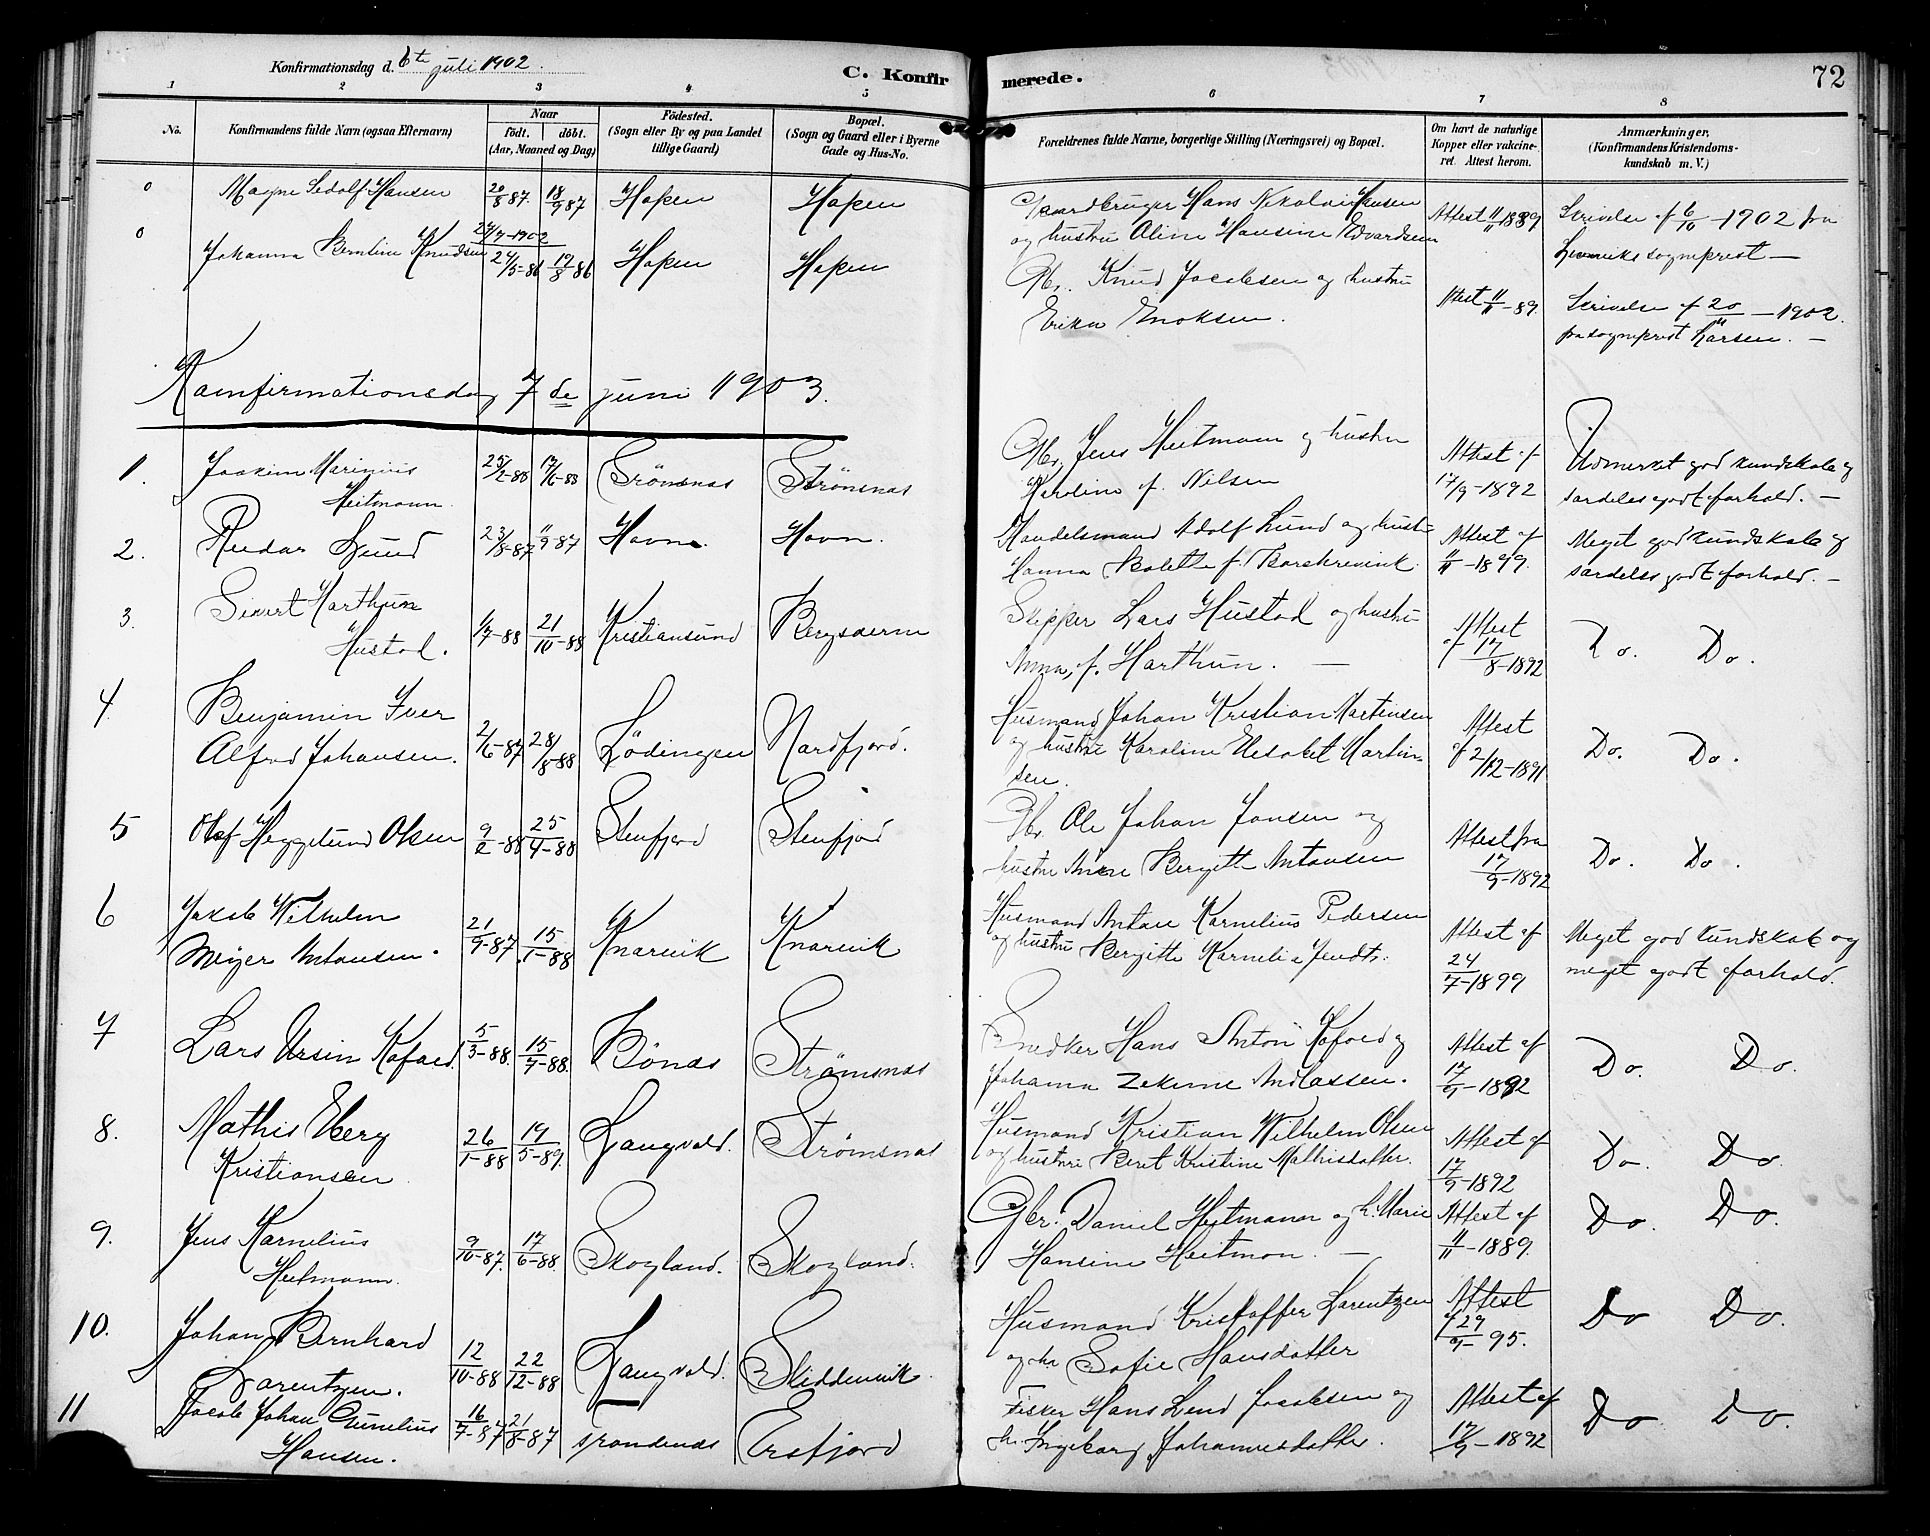 Konfirmationsdag d. 6te juli 1902.
C. Konfirmerede.
72
1 2 3 4 5 6 7 8
No.
Konfirmandens fulde Navn (ogsaa Efternavn)
Naar
født. døbt.
(Aar, Maaned og Dag)
Fødested.
(Sogn eller By og paa Landet
tillige Gaard)
Bopæl.
(Sogn og Gaard eller i Byerne
Gade og Hus-No.
Forældrenes fulde Navne, borgerlige Stilling (Næringsvei) og Bopæl.
Om havt de naturlige
Kopper eller vakcine-
ret. Attest herom.
Anmærkninger.
(Konfirmandens Kristendoms-
kundskab m. V.)
0 Magne Sedolf Hansen 20/8 87. 18/9 87 Hopen Hopen
Gaardbruger Hans Nikolai Hansen
og hustru Aline Hansine Edvardsen
Attest 11/11 1889
Skrivelse af 6/10 - 1902 fra
sogneprest —
27/7-1902
0 Johanna Bernline Knudsen 24/5-86 19/8 86 Hopen Hopen
Gbr. Knud Jacobsen og hustru
Erika Enoksen.
Attest 11/11-89.
Skrivelse af 20/11 - 1902.
fra sogneprest Larsen. —
Konfirmationsdag 7de juni 1903.
1. Joakim Marinius
Heitmann 25/2-88 17/6-88 Strömsnas Strömsnas
Gbr. Jens Heitmann og hustru
Karoline f. Nilsen
Attest af
17/9-1892
Udmerket god kundskab og
særdeles godt forhold. —
2. Reidar Lund 23/8-87 11/9-87 Havn. Havn.
Handelsmand Adolf Lund og hustru
Hanna Bolette f.
Attest af
11/11-1899.
Meget god kundskab og
særdeles godt forhold. —
3. Sivert Harthun
Hustad. 1/7-88 21/10-88 Kristiansund Bergsøerne
Skipper Lars Hustad og hustru
Anna, f. Harthun. —
Attest
af 17/8-1892
Do. Do.
4. Benjamin Iver
Alfred Johansen. 2/6-87 28/8-88 Lødingen Nordfjord.
Husmand Johan Kristian Martinsen
og hustru Karoline Elisabet Martin-
sen.
Attest
af 2/12-1891
Do. Do.
5 Olaf Heggelund Olsen 9/2-88 25/4-88 Stenfjord Stenfjord
Gbr. Ole Johan Jansen og
hustru Anne Bergitte Antonsen
Attest fra
17/9-1892
Do. Do.
6 Jakob Wilhelm
Meyer Antonsen. 21/9-87 15/1-88 Knarvik Knarvik
Husmand Anton Kornelius Pedersen
og hustru Bergitte Kornelia Jendts.
Attest af
24/7-1899
Meget god kundskab og
meget godt forhold.
7 Lars Ursin Kofoed. 5/3-88. 15/7-88. Bönas Strømsnas
Snedker Hans Anton Kofoed og
Johanna Zekine Andlassen.
Attest af
17/9-1892
Do. Do.
8. Mathis Eberg
Kristiansen 26/1-88 19/5-89. Langvald. Strømsnas
Husmand Kristian Wilhelm Olsen
og hustru Beret Kristine Mathisdatter.
Attest af
17/9-1892
Do. Do.
9. Jens Kornelius
Heitmann. 9/10-87. 17/6-88. Skogland. Skogland.
Gbr. Daniel Heitmann og h. Marie
Hansine Heitmon. —
Attest af
11/11-1889.
Do. Do.
10. Johan Bernhard
Larentzen. 12/10-88 22/12-88 Langvald. Sliddervik.
Husmand Kristoffer Larentzen
og hu Sofie Hansdatter
Attest
af 29/9-95.
Do Do.
11 Jacob Johan Cornelius
Hansen. 16/7-87 21/8-87 Ersfjord
Fisker Hans Lend Jacobsen og
h. Ingeborg Johannesdatter.
Attest af
17/9-1892
Do Do.